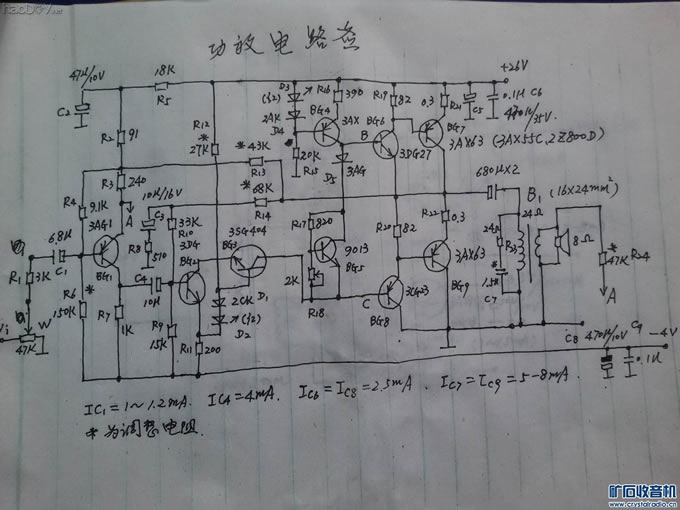 功放电路查
+26V
47μ/10V
18K
R5
C2
R12
*
27K
D3
(红)
2AK
D4
R16
390
BG4
3AX
*
20K
R15
R19
82
BG6
B
3DG27
0.3
R21
BG7
C5
0.1μ C6
470μ/35V
3AX63 (3AX55C,2Z800D)
R2
91
R3
240
A
*
43K
R13
*
68K
R14
D5
3AG
680μ×2
B1 (16×24mm²)
R4
9.1K
3AG1
10μ/16V
C3
R8
510
33K
R10
3DG
BG2
3SG404
BG3
R17
820
9013
BG5
R20
82
R22
0.3
3AX63
BG9
24Ω
R23
24Ω
8Ω
*
47K
R24
A
6.8μ
C1
R1
3K
BG1
C4
10μ
2K
R18
C
3CG23
BG8
*
1.5K
C7
R6
*
150K
R7
1K
R9
15K
R11
200
2CK
D1
(红)
D2
Vi
W
47K
C8
470μ/10V
C9
-4V
0.1μ
IC1=1~1.2mA. IC4=4mA. IC6=IC8=2.5mA. IC7=IC9=5-8mA.
*为调整电阻.
矿石收音机
www.crystalradio.cn